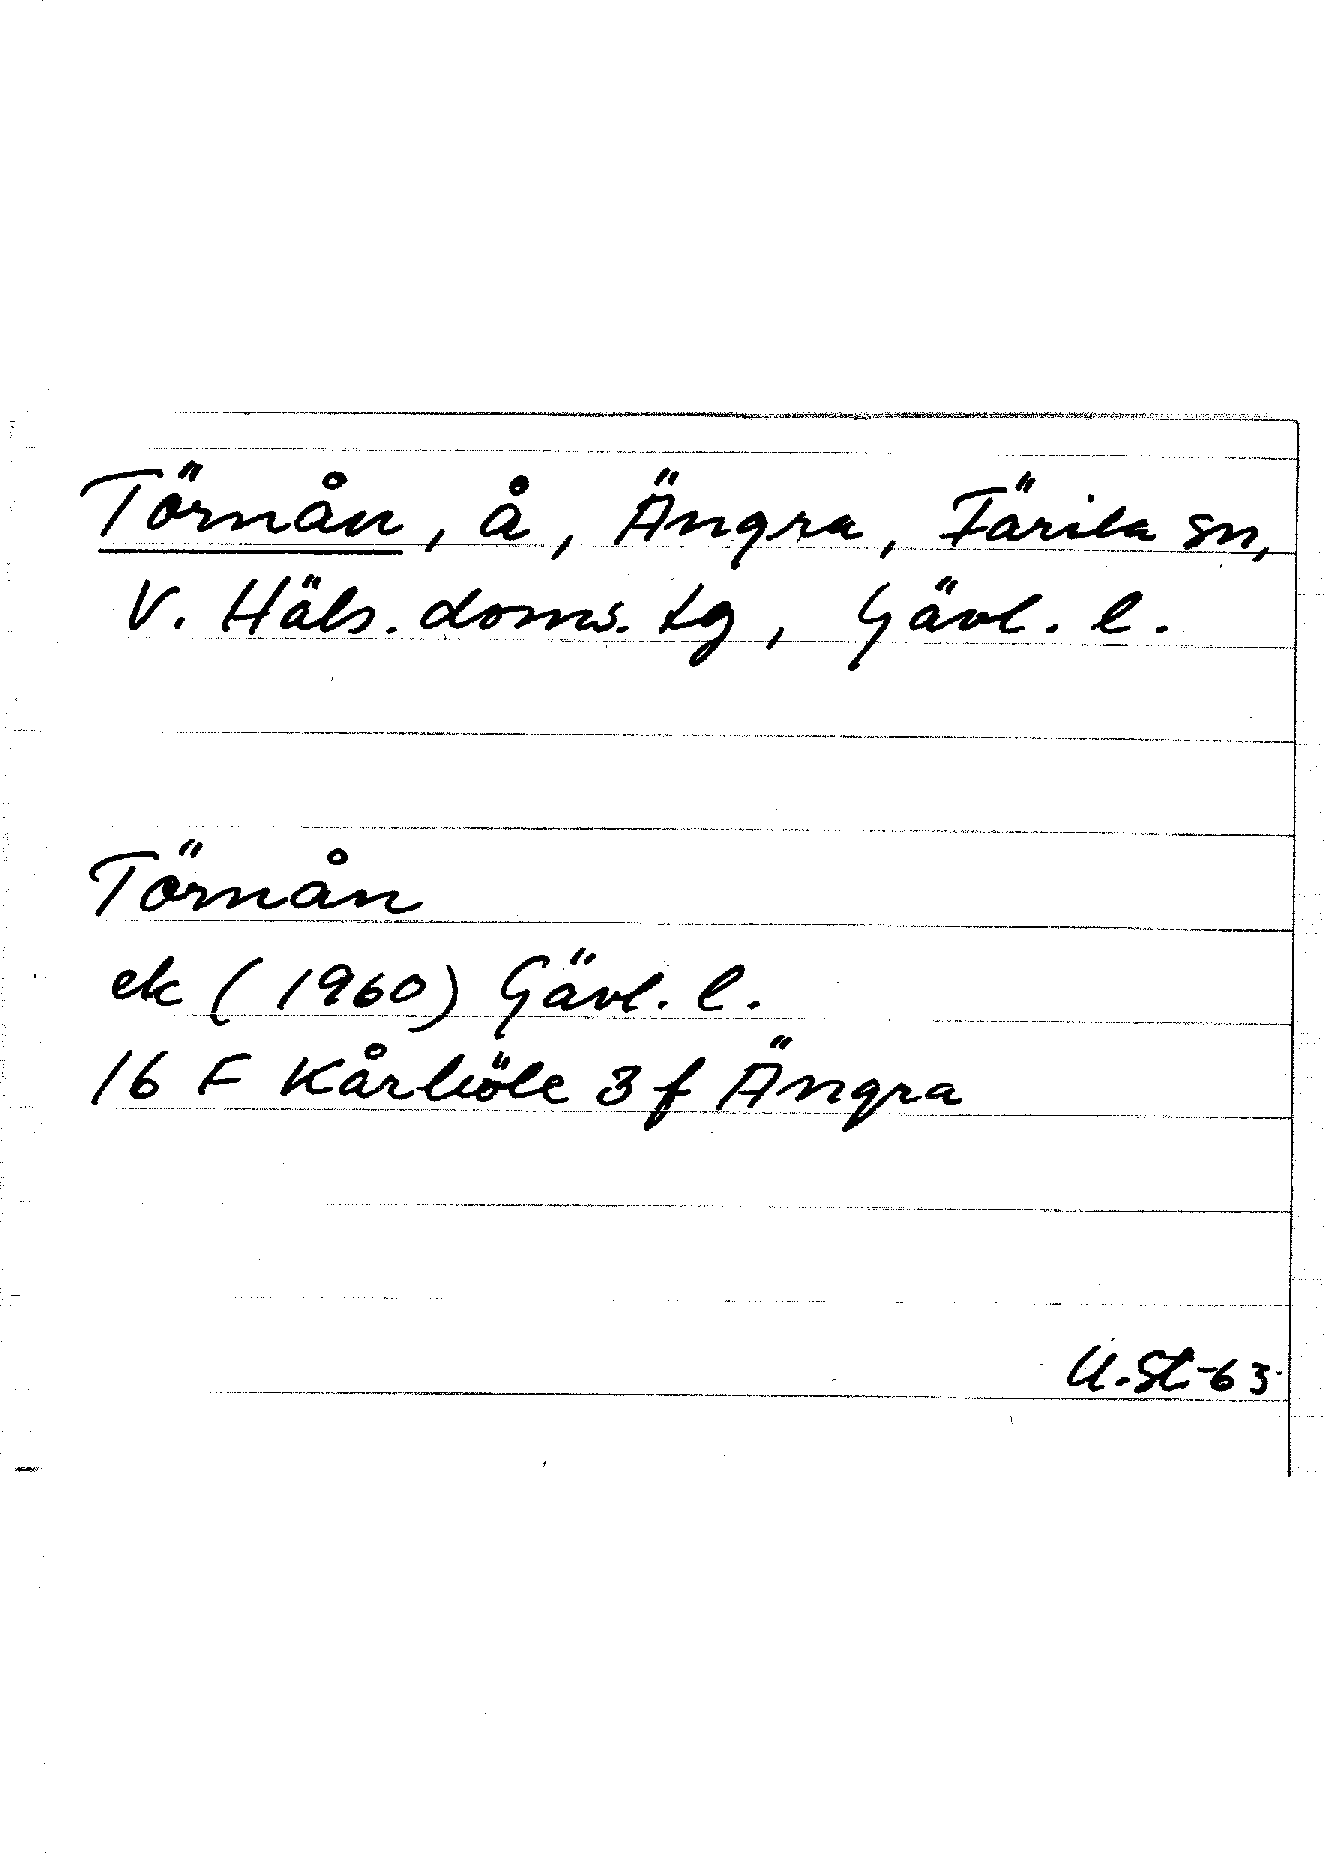 Törnån, å, Ängra, Färila sn,
V. Häls. doms. tg, Gävl. l.
Törnån
ek (1960) Gävl. l.
16 F Kårböle 3 f Ängra
U.St-63